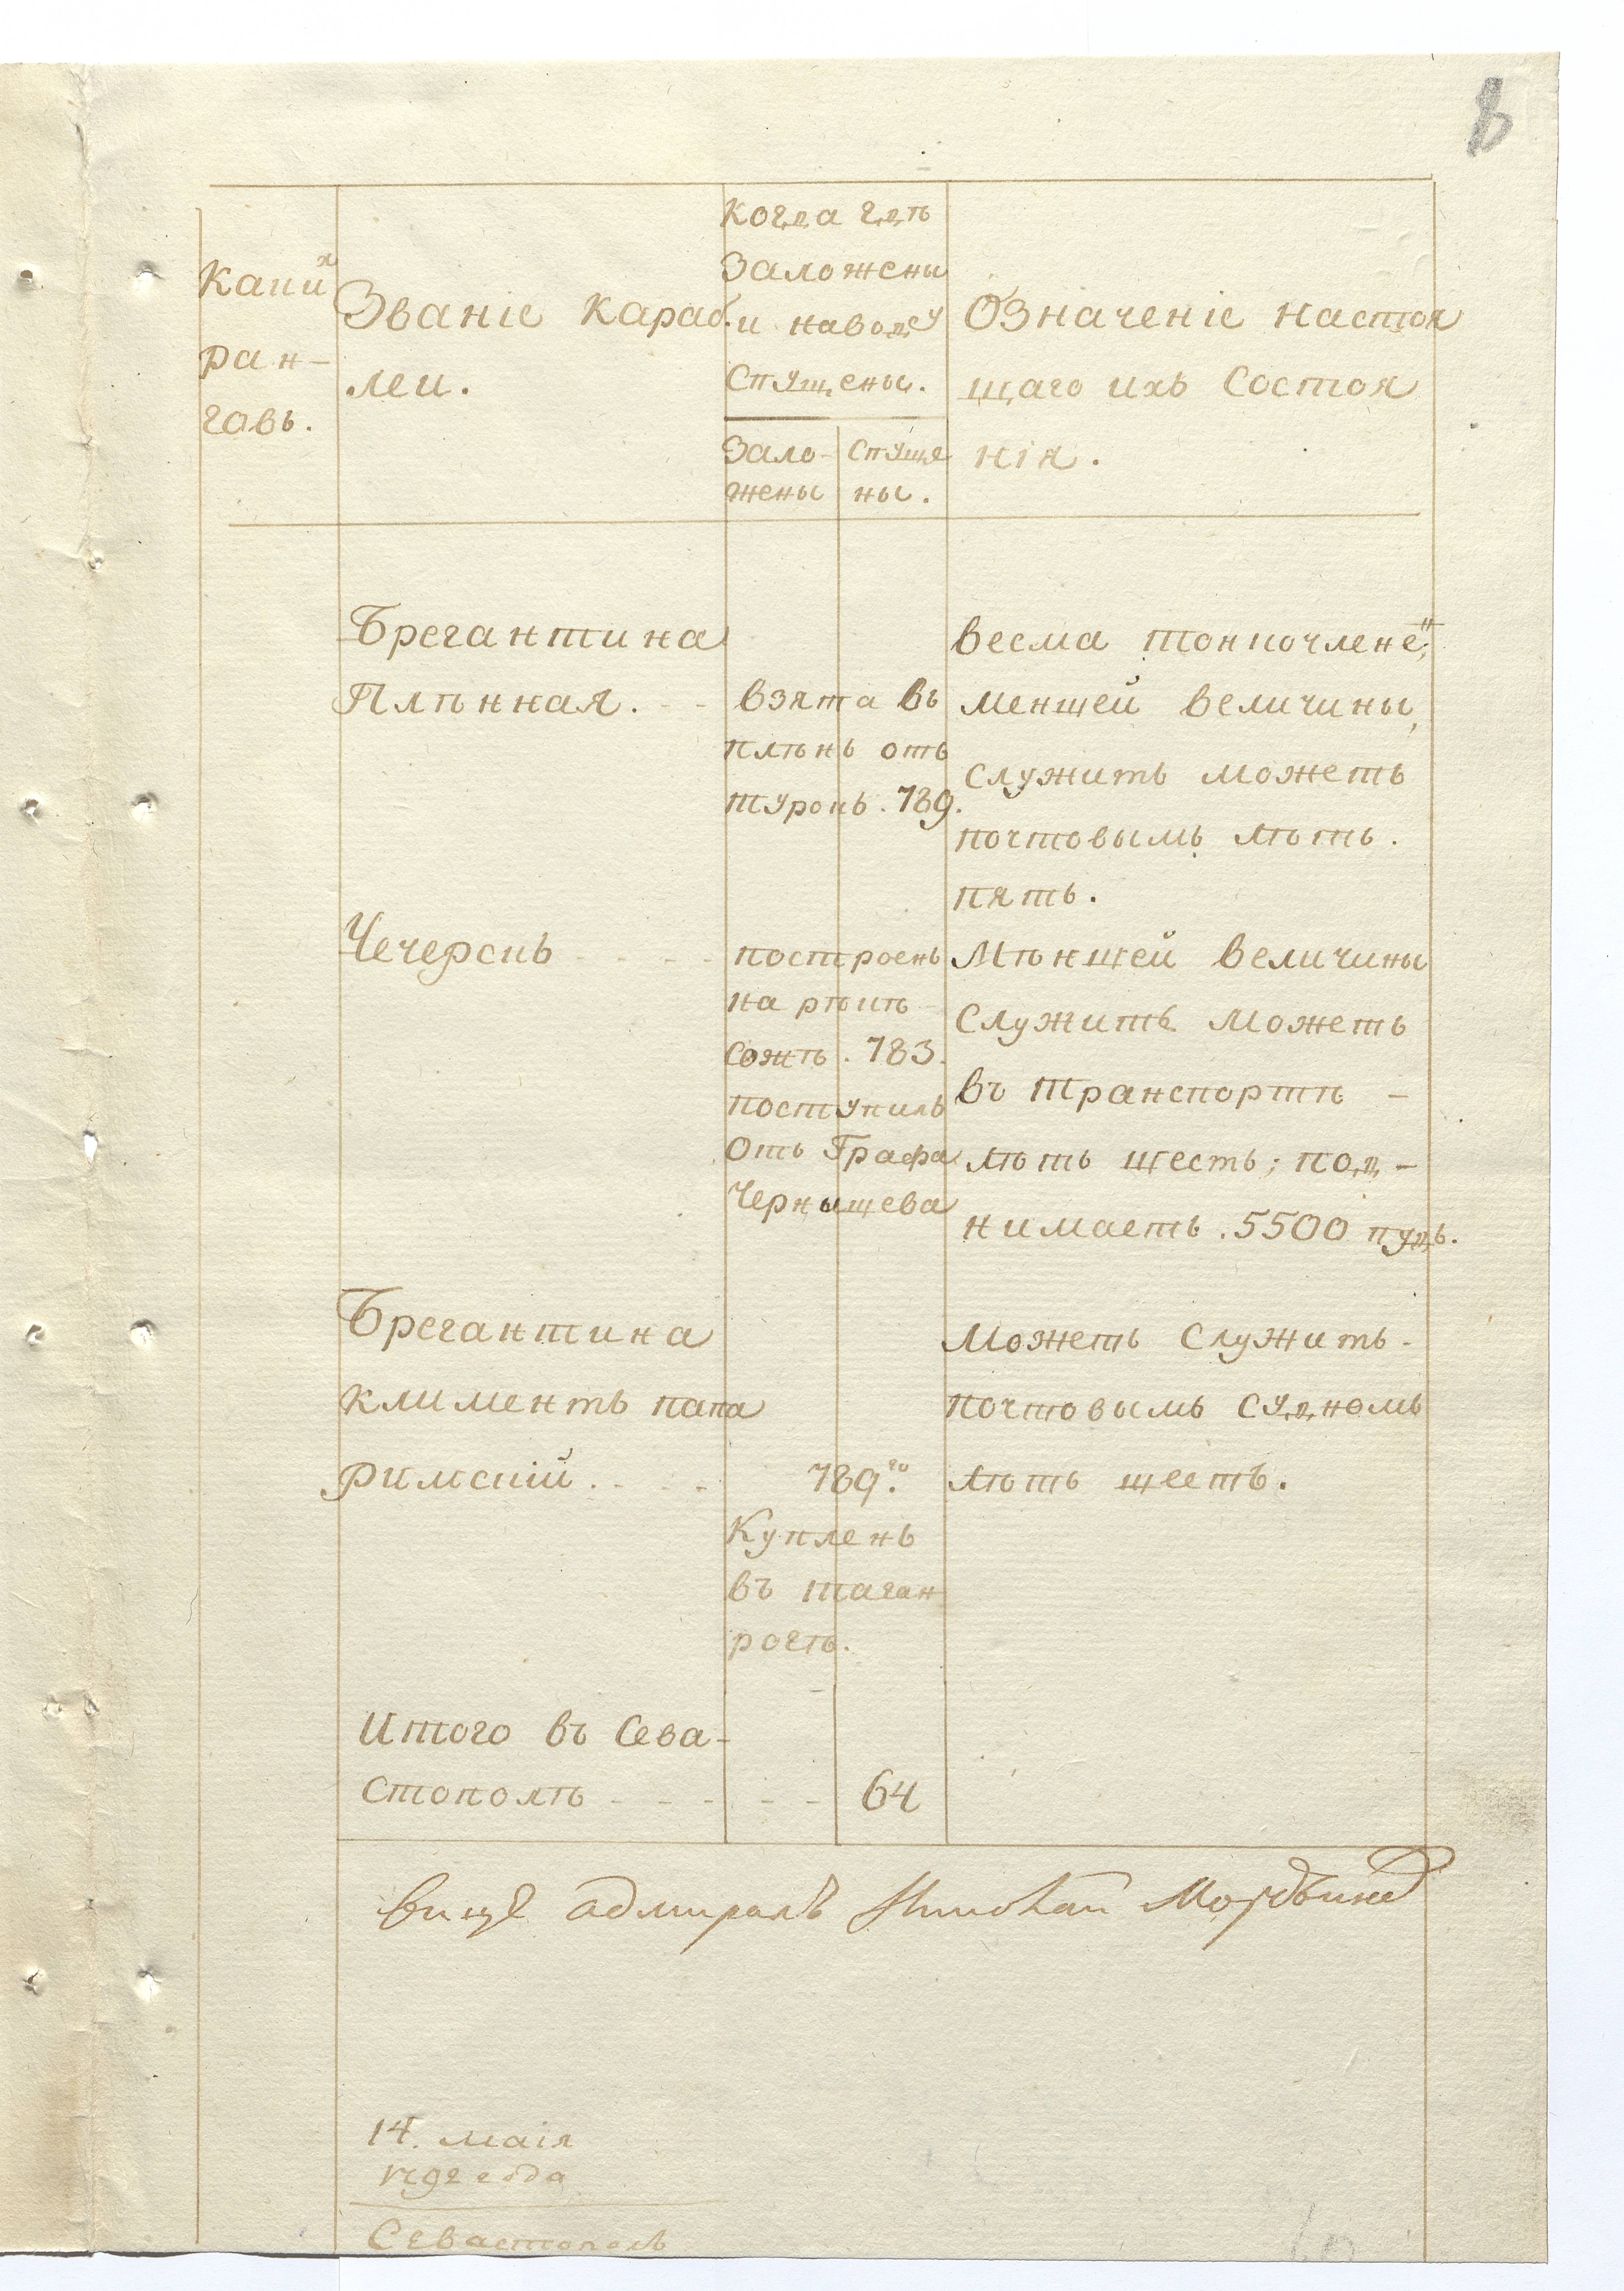 8
Какихъ
ран-
говъ.
Званіе караб.
леи.
Когда гдѣ
Заложены
и наводу
Спущены.
Зало-
жены
Спуще
ны.
Означеніе настоя
щаго ихъ Состоя
нія.
Брегантина
Плѣнная.
взята въ
плѣнъ отъ
турокъ. 789.
весма тонкочлене"
меншей величины,
служить можетъ
почтовымъ лѣтъ.
пять.
Чечерскъ
построенъ
на рѣкѣ
Сожѣ. 783.
поступилъ
Отъ Графа
Чернышева
Мѣншей величины
Служить можетъ
въ транспортѣ -
лѣтъ шесть; под-
нимаетъ. 5500 пудъ.
Брегантина
климентъ папа
римскій.
789.го
Купленъ
въ таган
рогѣ.
Можетъ Служить-
почтовымъ судномъ
лѣтъ шесть.
Итого въ Сева-
стополѣ - - - - - 64
вице адмиралъ Николай Мордвинов
14. маія
1792 года
Севастополь